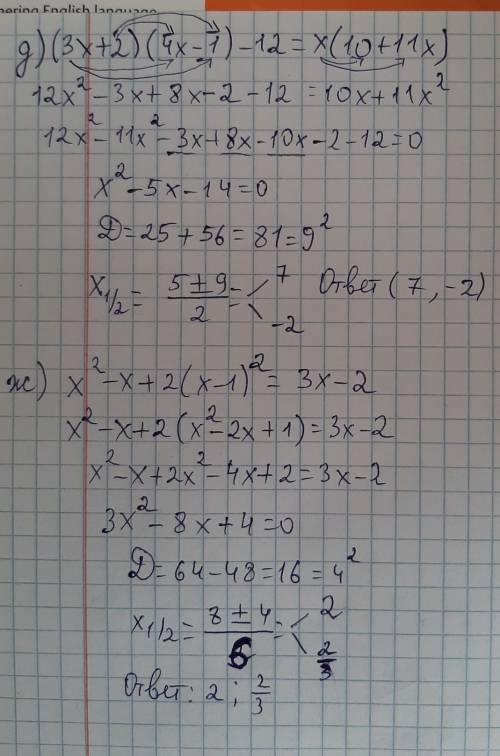 nering English language
д) (3x+2)(4x-1)-12=x(10+11x)
12x²-3x+8x-2-12=10x+11x²
12x²-11x²-3x+8x-10x-2-12=0
x²-5x-14=0
D=25+56=81=9²
x1/2=(5±9)/2= 7 -2 Ответ (7, -2)
ж) x²-x+2(x-1)²=3x-2
x²-x+2(x²-2x+1)=3x-2
x²-x+2x²-4x+2=3x-2
3x²-8x+4=0
D=64-48=16=4²
x1/2=(8±4)/6= 2 2/3
Ответ: 2; 2/3